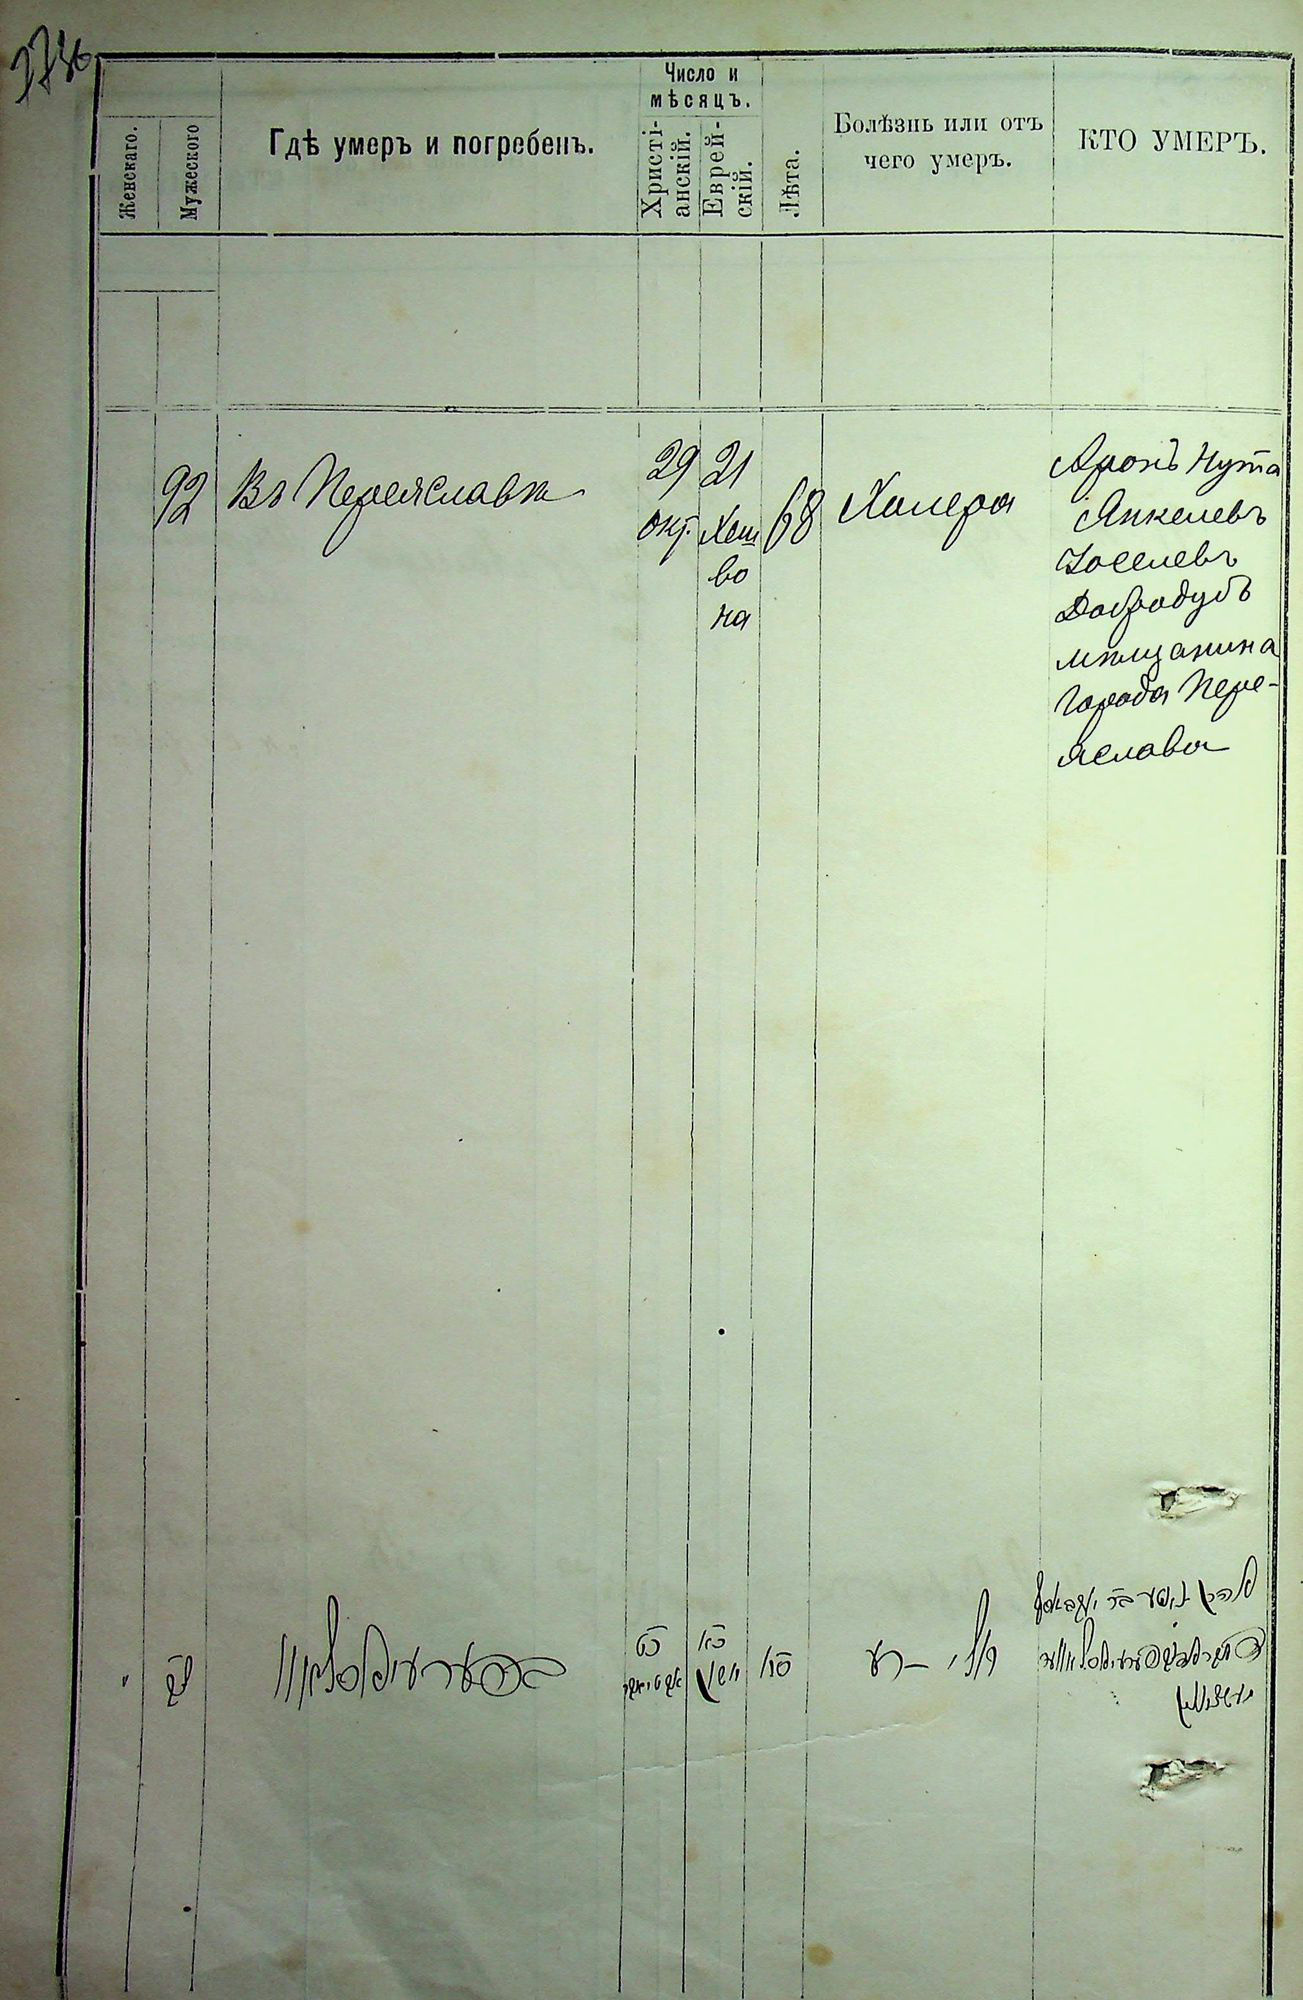 Женскаго.
Мужескаго
Гдѣ умеръ и погребенъ.
Число и
мѣсяцъ.
Христі-
анскій.
Еврей-
скій.
Лѣта.
Болѣзнь или отъ
чего умеръ.
КТО УМЕРЪ.
92
Въ Переяславѣ
29
окт.
21
Хеш
во
на
68
Холера
Аронъ Нута
Янкелевъ
Іоселевъ
Добродубъ
мѣщанина
города Пере-
яслава
צב
פערעיסלאוו
כט
כא
חשון